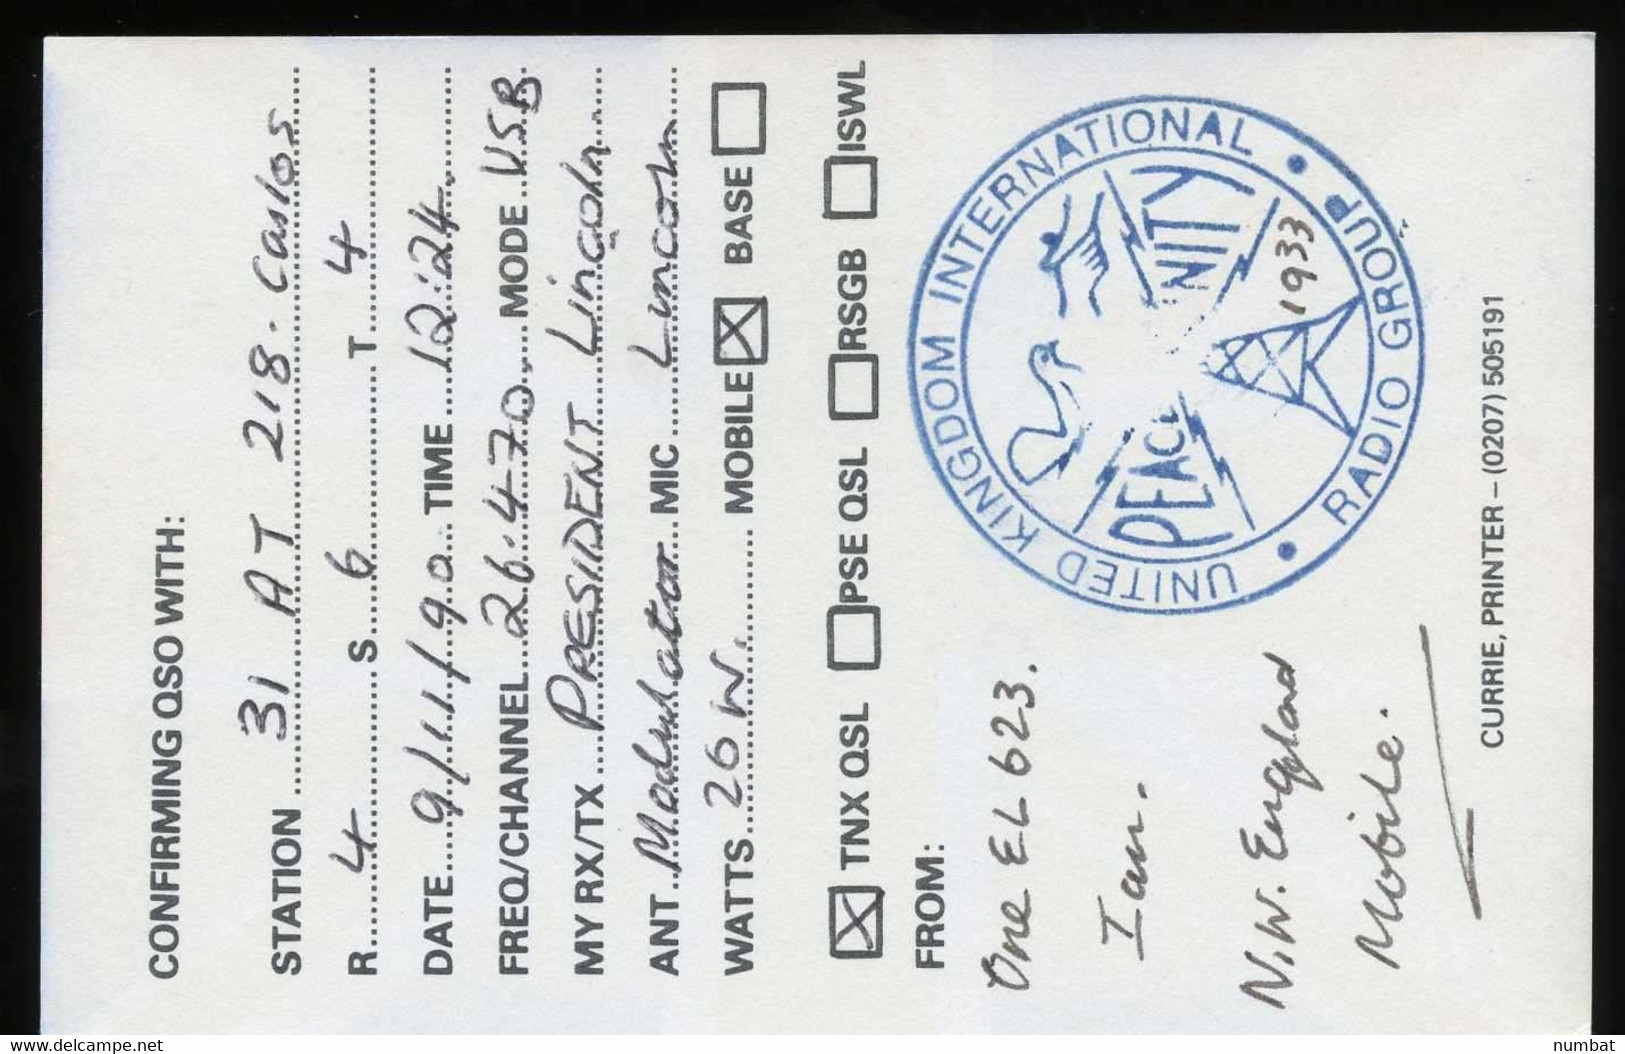 CONFIRMING QSO WITH:
STATION 31 AT 218. Carlos
R 4 S 6 T 4
DATE 9/11/90 TIME 12:24.
FREQ/CHANNEL 26.470. MODE U.S.B.
MY RX/TX PRESIDENT Lincoln.
ANT. Modulator MIC Lincoln
WATTS 26 W. MOBILE BASE
TNX QSL PSE QSL RSGB ISWL
FROM:
One EL 623.
Ian.
N.W. England
Mobile.
UNITED KINGDOM INTERNATIONAL
RADIO GROUP
1933
CURRIE, PRINTER – (0207) 505191
www.delcampe.net
numbat